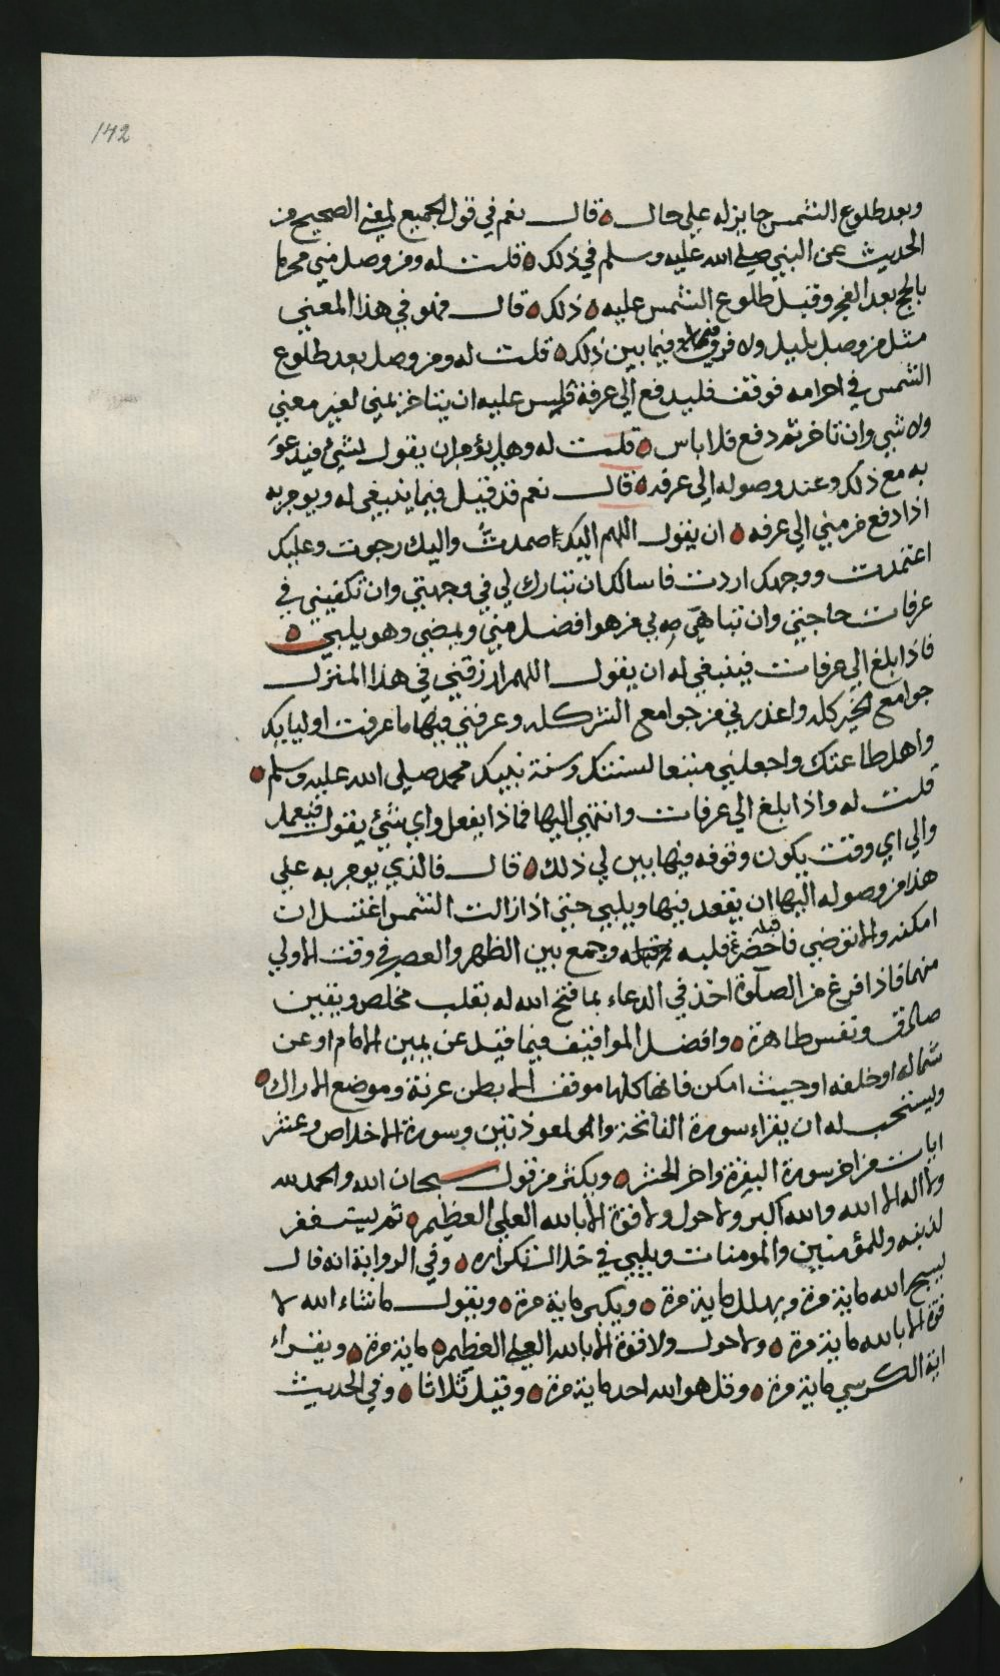 142
وبعد طلوع الشمس جايز له علي حال ه قال نعم في قول الجميع لمعني الصحيح من
الحديث عن النبي صلى الله عليه وسلم في ذلك ه قلت له ومن وصل مني محرما
بالحج بعد الفجر وقبل طلوع الشمس عليه ه ذلك ه قال فهو في هذا المعني
مثل من وصل بليل ولا فرق فيما بين ذلك ه قلت له ومن وصل بعد طلوع
الشمس في احرامه فوقف فليدفع الي عرفة وليس عليه ان يتاخر بمني لغير معني
ولا شي وان تاخر ثم دفع فلا باس ه قلت له وهل يؤمر ان يقول لشيء فيدعو
به مع ذلك وعند وصوله الي عرفه ه قال نعم قد قيل فيما ينبغي له ويومر به
اذا دفع من مني الي عرفه ه ان يقول اللهم اليك صمدت واليك رجوت وعليك
اعتمدت ووجهك اردت فاسالك ان تبارك لي في وجهتي وان تكفيني في
عرفات حاجتي وان تباهي بي من هو افضل مني ويمضي وهو يلبي ه
فاذا بلغ الي عرفات فينبغي له ان يقول اللهم ارزقني في هذا المنزل
جوامع الخير كله واعذربي من جوامع الشر كله وعرفني فيها ما عرفت اوليايك
واهل طاعتك واجعلني متبعا لسنتك وسنة نبيك محمد صلى الله عليه وسلم ه
قلت له واذا بلغ الي عرفات وانتهي اليها فماذا يفعل واي شئ يقول فيعمل
والي اي وقت يكون وقوفه فيها بين لي ذلك ه قال فالذي يومر به علي
هذا من وصوله اليها ان يقعد فيها ويلبي حتي اذا زالت الشمس اغتسل ان
امكنه والا توضي فاحضر قلبه وجمع بين الظهر والعصر في وقت الاولي
منهما فاذا فرغ من الصلاة اخذ في الدعاء بما فتح الله له بقلب مخلص ويقين
صادق ونفس طاهرة ه وافضل المواقف فيما قيل عن يمين الامام او عن
شماله او خلفه او حيث امكن فانها كلها موقف الا بطن عرنة وموضع الاراك ه
ويستحب له ان يقراء سورة الفاتحة والمعوذتين وسورة الاخلاص وعشر
ايات من اخر سورة البقرة واخر الحشر ه ويكثر من قول سبحان الله والحمد لله
ولا اله الا الله والله اكبر ولا حول ولا قوة الا بالله العلي العظيم ه ثم يستغفر
لذنبه وللمؤمنين والمومنات ويلبي في خلال تكراره ه وفي الرواية انه قال
يسبح الله ماية مرة ويهلل ماية مرة ه ويكبر ماية مرة ه ويقول ماشاء الله لا
قوة الا بالله ماية مرة ه ولا حول ولا قوة الا بالله العلي العظيم ه ماية مرة ه ويقراء
اية الكرسي ماية مرة ه وقل هو الله احد ماية مرة ه وقيل ثلاثا ه وفي الحديث